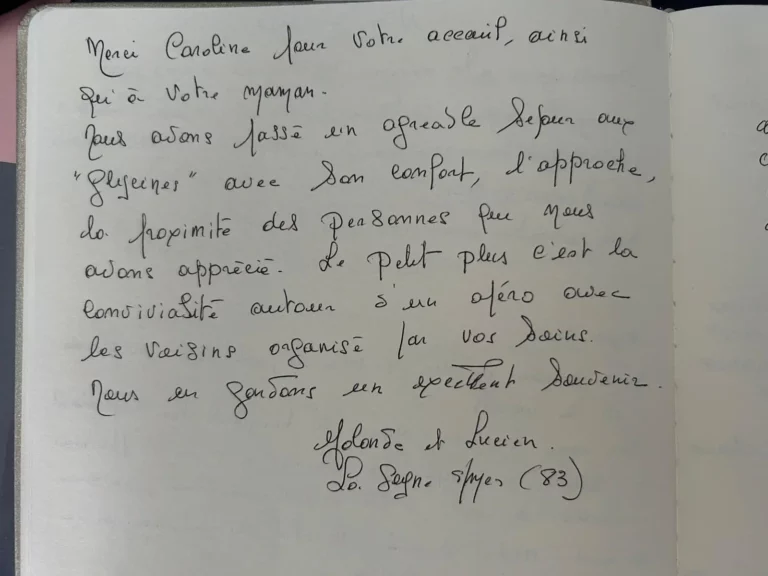 Merci Caroline pour votre accueil, ainsi
qu'à votre maman.
Nous avons passé un agréable séjour aux
"Glycines" avec son confort, l'approche,
la proximité des personnes que nous
avons apprécié. Le petit plus c'est la
convivialité autour d'un apéro avec
les voisins organisé par vos soins.
Nous en gardons un excellent souvenir.
Yolande et Lucien.
La Seyne s/mer (83)